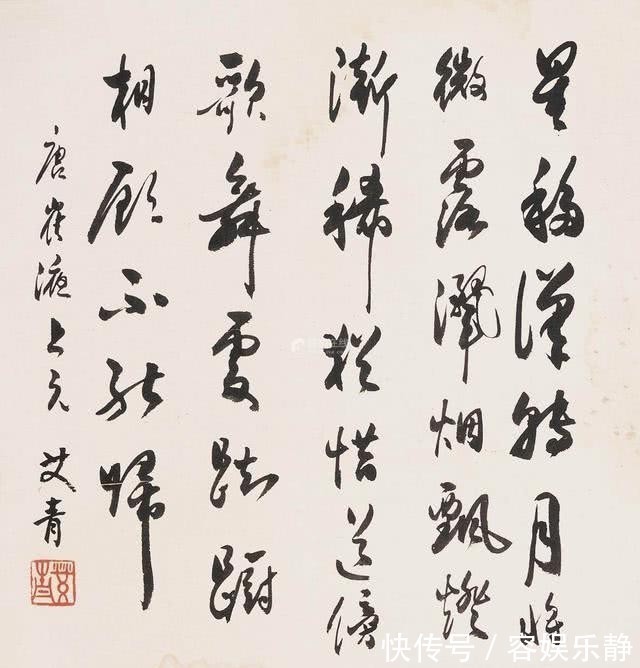 星移漢轉月將
微露灑烟飄燈
漸稀猶惜道傍
歌舞處踟蹰
相顧不能歸
唐崔液上元 艾青
快传号 / 容娱乐静